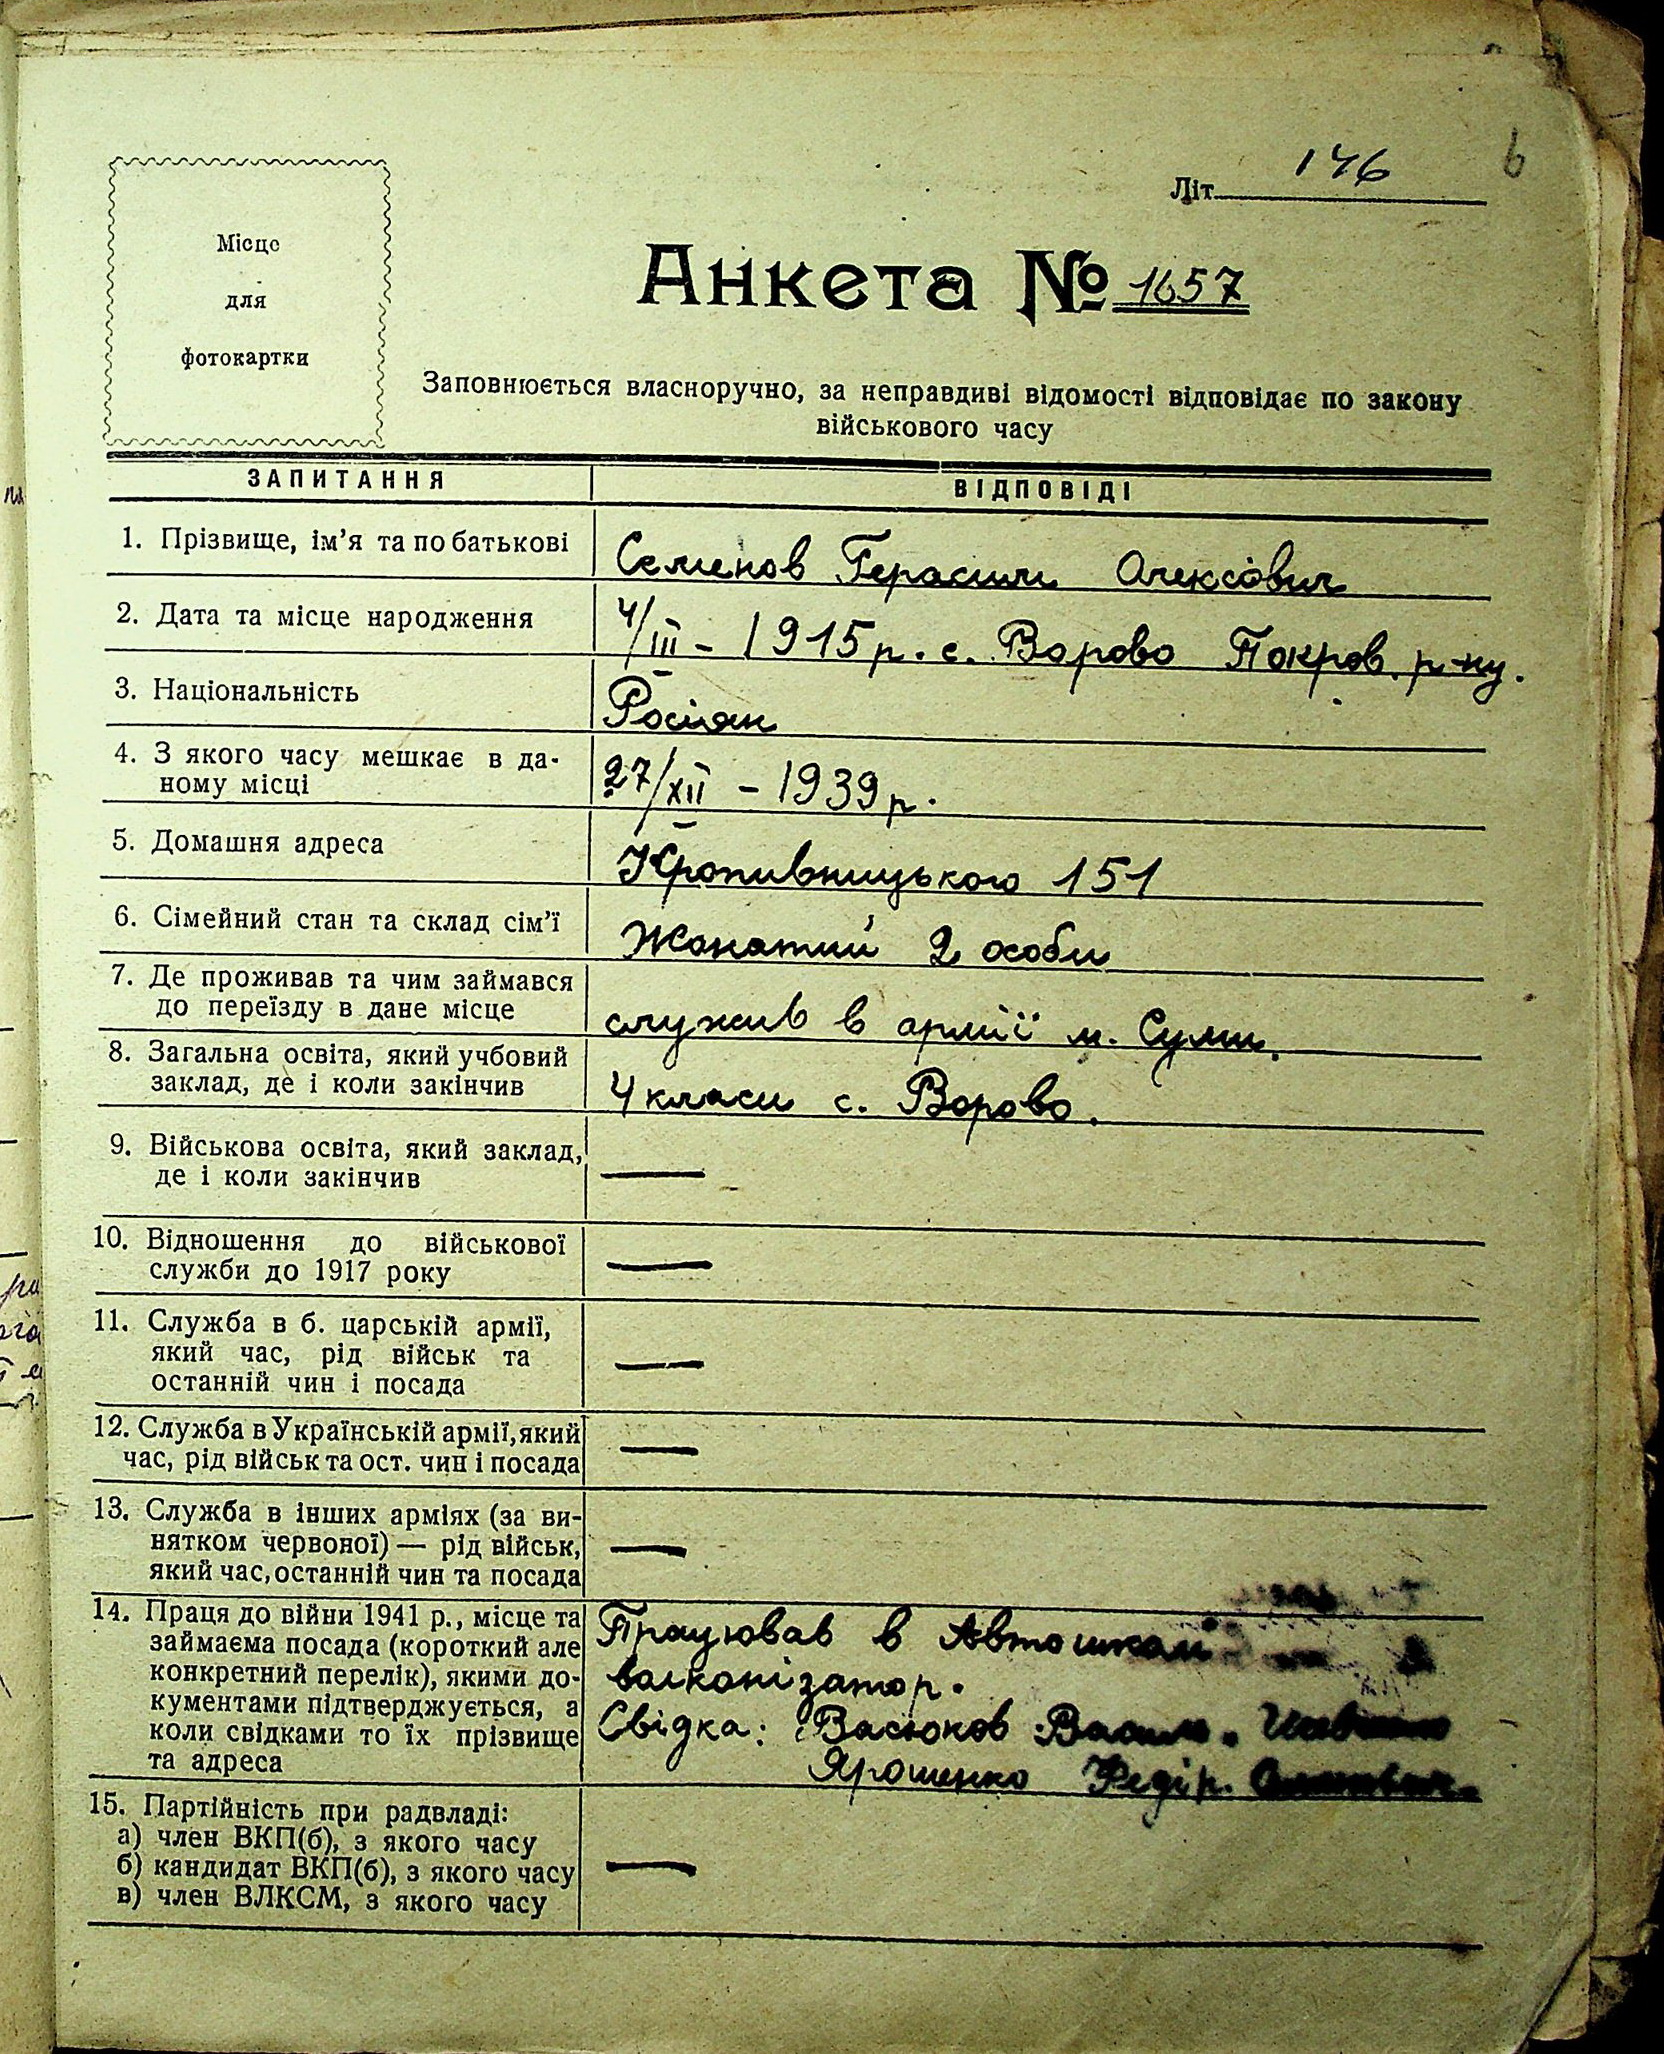 6
Літ. 146
Місце
для
фотокартки
Анкета № 1657
Заповнюється власноручно, за неправдиві відомості відповідає по закону
військового часу
ЗАПИТАННЯ ВІДПОВІДІ
1. Прізвище, ім'я та по батькові Семенов Герасим Олексович
2. Дата та місце народження 4/III - 1915 р. с. Ворово Покров. р-ну.
3. Національність Росіян
4. З якого часу мешкає в да-
ному місці 27/XII - 1939 р.
5. Домашня адреса Кропивницького 151
6. Сімейний стан та склад сім'ї Жонатий 2 особи
7. Де проживав та чим займався
до переїзду в дане місце служив в армії м. Суми.
8. Загальна освіта, який учбовий
заклад, де і коли закінчив 4 класи с. Ворово.
9. Військова освіта, який заклад,
де і коли закінчив —
10. Відношення до військової
служби до 1917 року —
11. Служба в б. царській армії,
який час, рід військ та
останній чин і посада —
12. Служба в Українській армії, який
час, рід військ та ост. чин і посада —
13. Служба в інших арміях (за ви-
нятком червоної) — рід військ,
який час, останній чин та посада —
14. Праця до війни 1941 р., місце та
займаєма посада (короткий але
конкретний перелік), якими до-
кументами підтверджується, а
коли свідками то їх прізвище
та адреса
Працював в Автошколі
валконізатор.
Свідка: Васюков Василь.
Ярошенко Федір.
15. Партійність при радвладі:
а) член ВКП(б), з якого часу
б) кандидат ВКП(б), з якого часу —
в) член ВЛКСМ, з якого часу